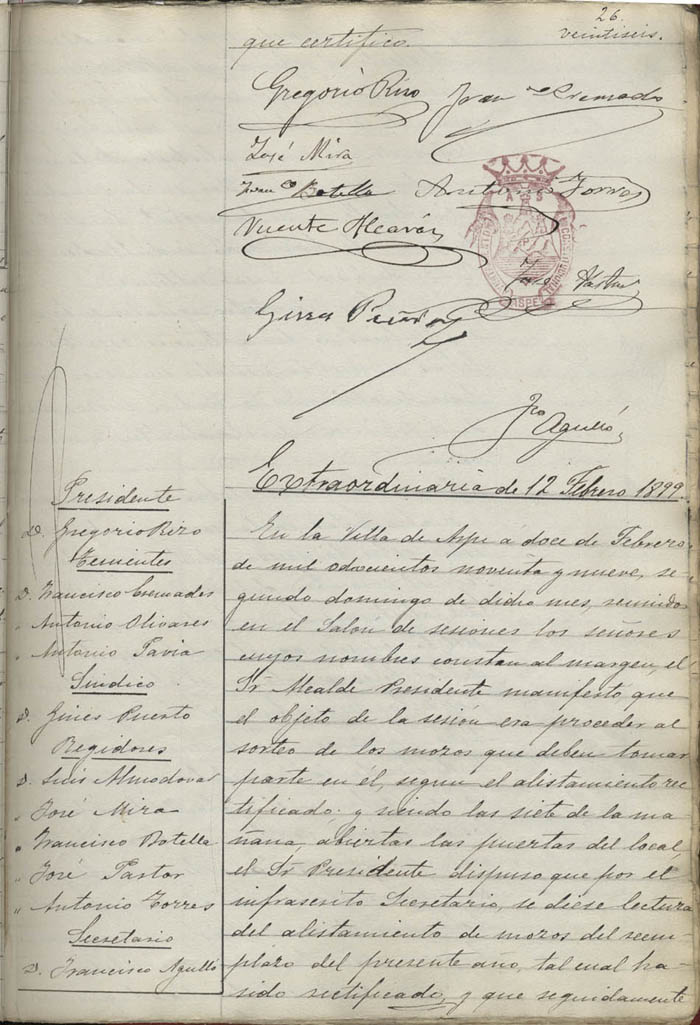 26.
veintiseis.
que certifico.
Gregorio Rizo Fran.co Cremades
José Mira
Fran.co Botella Antonio Torres
Vicente Alcaráz
José Pastor
Gines Puerto
Fco Agulló
Extraordinaria de 12 Febrero 1899.
Presidente
D. Gregorio Rizo
Tenientes
D. Francisco Cremades
" Antonio Olivares
" Antonio Pavia
Sindico
D. Gines Puerto
Regidores
D. Luis Almodovar
" José Mira
" Francisco Botella
" José Pastor
" Antonio Torres
Secretario
D. Francisco Agulló
En la Villa de Aspe á doce de Febrero
de mil ochocientos noventa y nueve, se-
gundo domingo de dicho mes, reunidos
en el Salón de sesiones los señores
cuyos nombres constan al margen, el
Sr Alcalde Presidente manifestó que
el objeto de la sesión era proceder al
sorteo de los mozos que deben tomar
parte en el, segun el alistamiento rec-
tificado: y siendo las siete de la ma-
ñana, abiertas las puertas del local,
el Sr Presidente dispuso que por el
infrascrito Secretario, se diese lectura
del alistamiento de mozos del reem-
plazo del presente año, tal cual ha
sido rectificado, y que seguidamente